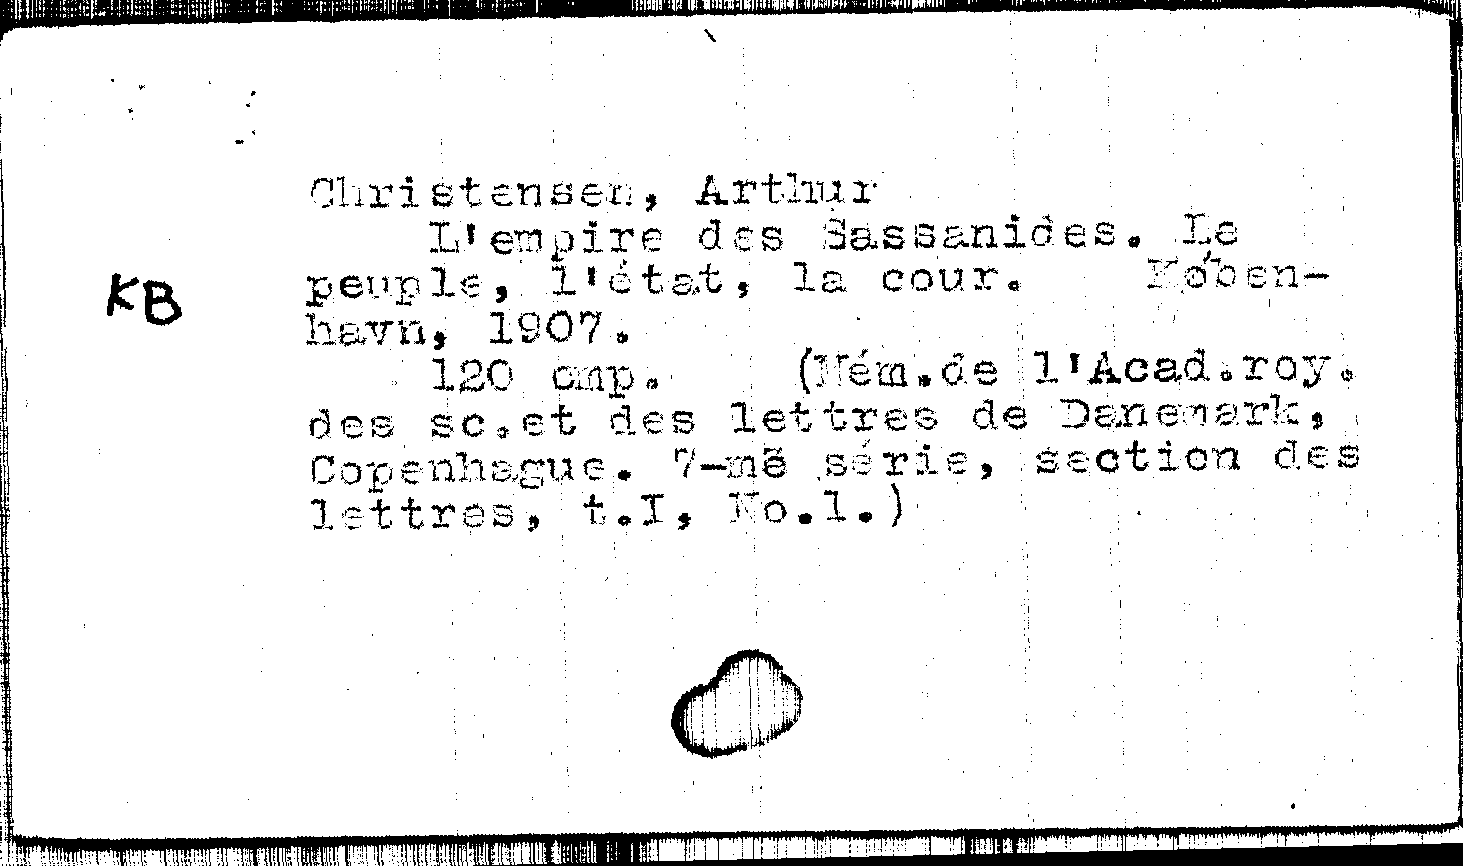 Christensen, Arthur
L'empire des Sassanides. Le
peuple, l'état, la cour. Køben-
KB
havn, 1907.
120 cmp. (Mém.de l'Acad.roy.
des sc.et des lettres de Danemark,
Copenhague. 7-më série, section des
lettres, t.I, No.1.)